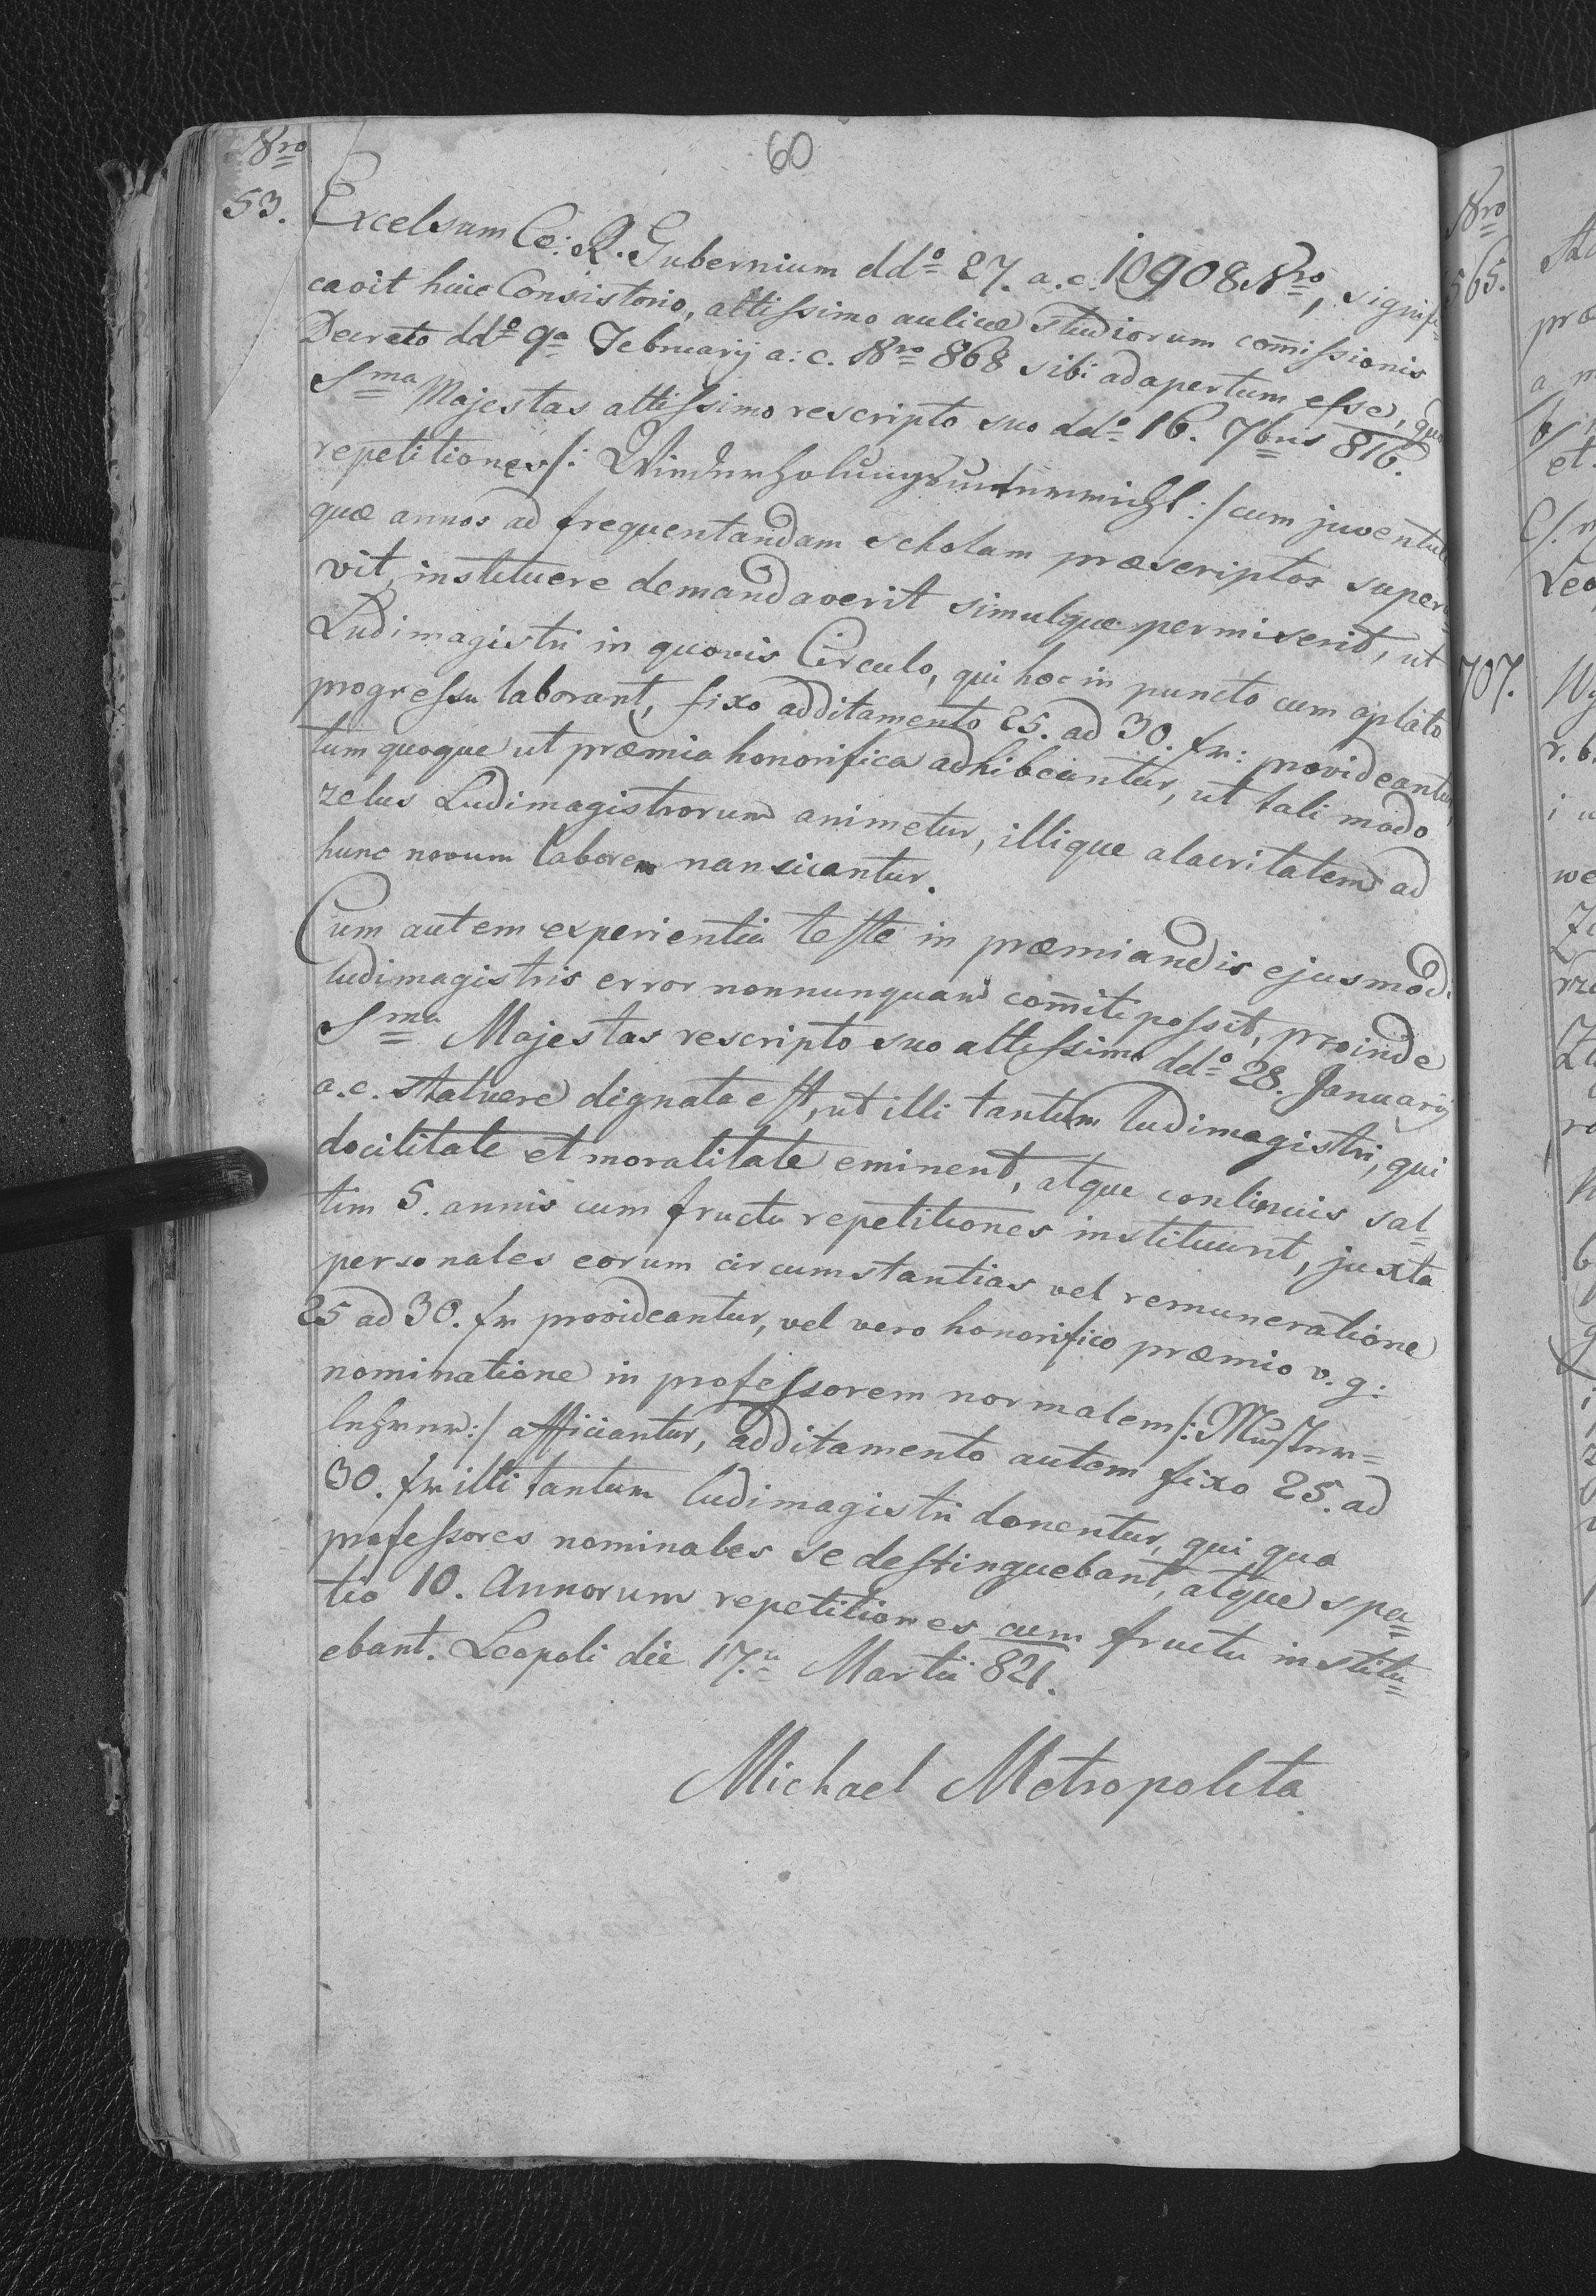 60
Nro
53.
Excelsum Cæ: R. Gubernium ddo 27. a. c. 10908 Nro, signifi
cavit huic Consistorio, altissimo aulicæ studiorum comissionis
Decreto ddo 9a Februarij a: c. Nro 868 sibi adapertum esse, quo
Sma Majestas altissimo rescripto suo ddo 16. 7bris 816.
repetitiones /: Wiederholungsunterricht :/ cum juventute
quæ annos ad frequentandam scholam præscriptos supera
vit, instituere demandaverit simulque permiserit, ut
Ludimagistri in quovis Circulo, qui hoc in puncto cum optato
progressu laborant, fixo additamento 25. ad 30. fr: provideantur,
tum quoque ut præmia honorifica adhibeantur, ut tali modo
zelus Ludimagistrorum animetur, illique alacritatem ad
hunc novum laborem nansicantur.
Cum autem experientia teste in præmiandis ejusmodi
ludimagistris error nonnunquam comiti possit, proinde
Sma Majestas rescripto suo altissimo ddo 28. Januarij
a. c. statuere dignata est, ut illi tantum ludimagistri, qui
docilitate et moralitate eminent, atque continuis sal=
tim 5. annis cum fructu repetitiones instituunt, juxta
personales eorum circumstantias vel remuneratione
25 ad 30. fr provideantur, vel vero honorifico præmio v. g:
nominatione in professorem normalem /: Muster=
lehrer :/ afficiantur, additamento autem fixo 25. ad
30. fr illi tantum ludimagistri donentur, qui qua
professores nominales se destinguebant, atque spa=
tio 10. Annorum repetitiones cum fructu institu=
ebant. Leopoli die 17.a Martii 821.
Michael Metropolita
Nro
565.
707.